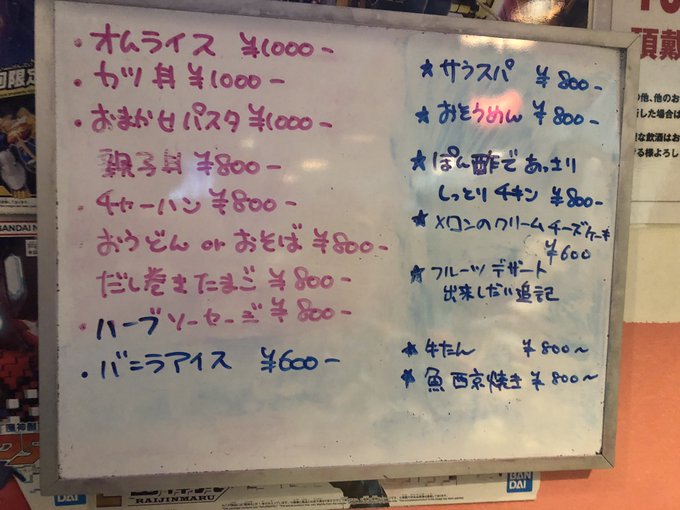 ・オムライス ¥1000-
・カツ丼 ¥1000-
・おまかせパスタ ¥1000-
親子丼 ¥800-
・チャーハン ¥800-
おうどん or おそば ¥800-
だし巻きたまご ¥800-
・ハーブソーセージ ¥800-
・バニラアイス ¥600-
★サラスパ ¥800-
★おそうめん ¥800-
★ぽん酢であっさり
しっとりチキン ¥800-
★メロンのクリームチーズケーキ
¥600
★フルーツデザート
出来しだい追記
★牛たん ¥800~
★魚西京焼き ¥800~
頂戴
の他、他のお
した場合は
BANDAI
RAIJINMARU
BAN
DAI
BAN
DAI